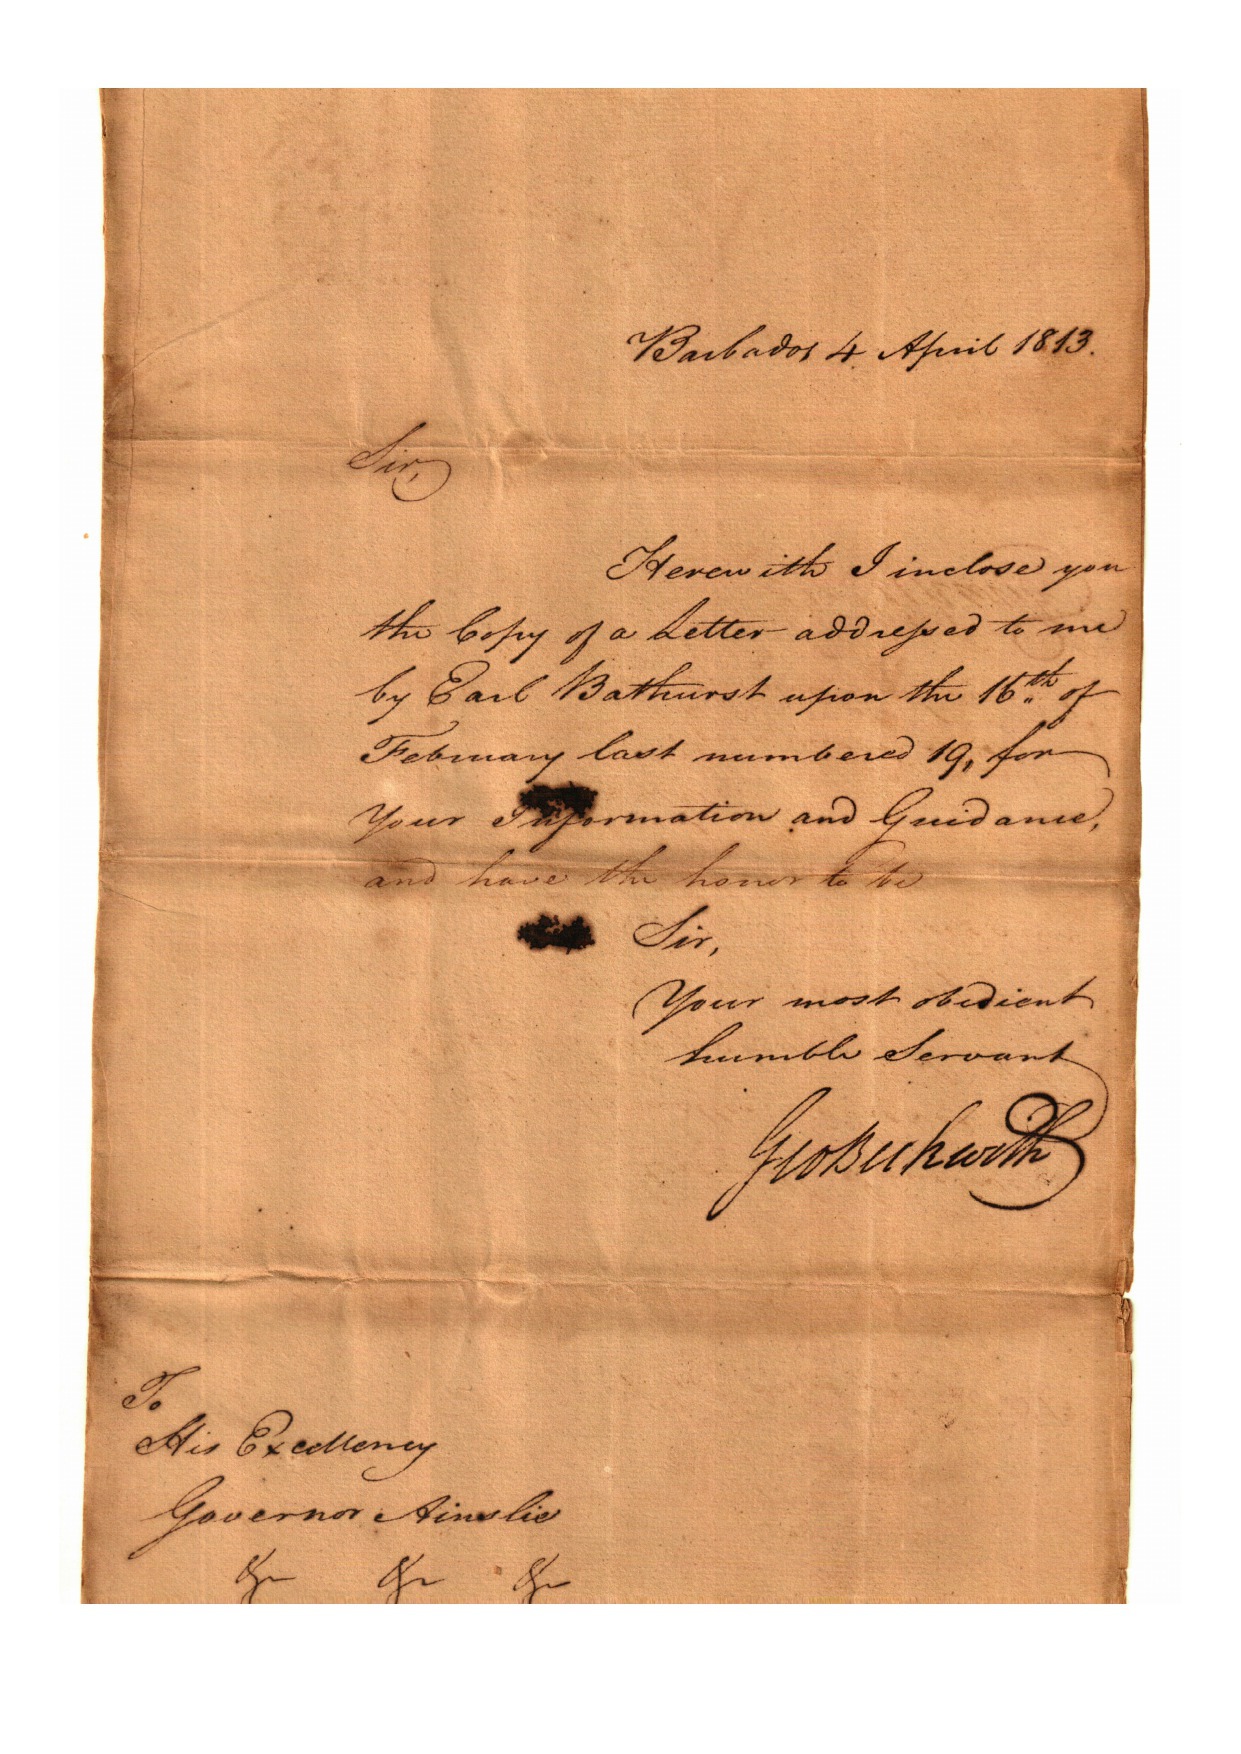 Barbados 4 April 1813.
Sir,
Herewith I inclose you
the Copy of a Letter addressed to me
by Earl Bathurst upon the 16th of
February last numbered 19, for
Your Information and Guidance,
and have the honor to be
Sir,
Your most obedient
humble Servant
Geo Beckwith
To
His Excellency
Governor Ainslie
&c &c &c